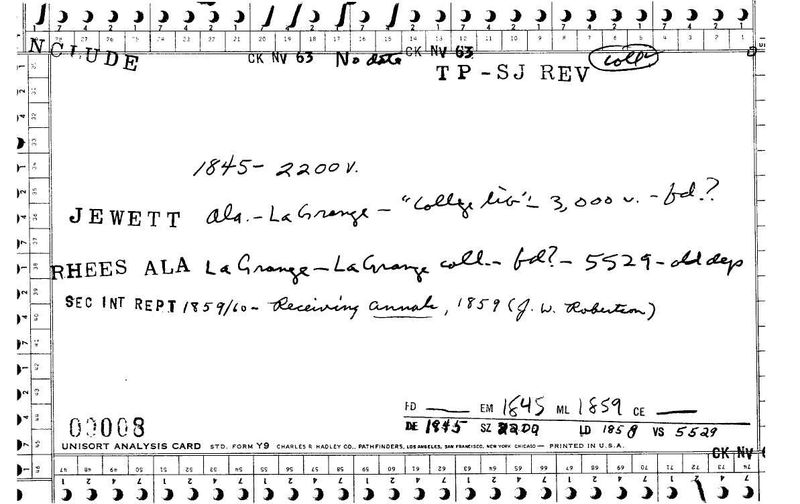 INCLUDE CK NV 63 No date CK NV 63 coll
TP-SJ REV
1845- 2200 v.
JEWETT Ala.-LaGrange- "College lib"- 3,000 v. - fd.?
RHEES ALA LaGrange-LaGrange coll.- fd?- 5529-old deps
SEC INT REPT 1859/60- Receiving annals, 1859 (J. W. Robertson)
FD EM 1845 ML 1859 CE
DE 1845 SZ 2200 LD 1858 VS 5529
00008
UNISORT ANALYSIS CARD STD. FORM Y9 CHARLES R HADLEY CO., PATHFINDERS, LOS ANGELES, SAN FRANCISCO, NEW YORK CHICAGO— PRINTED IN U.S.A.
CK NV